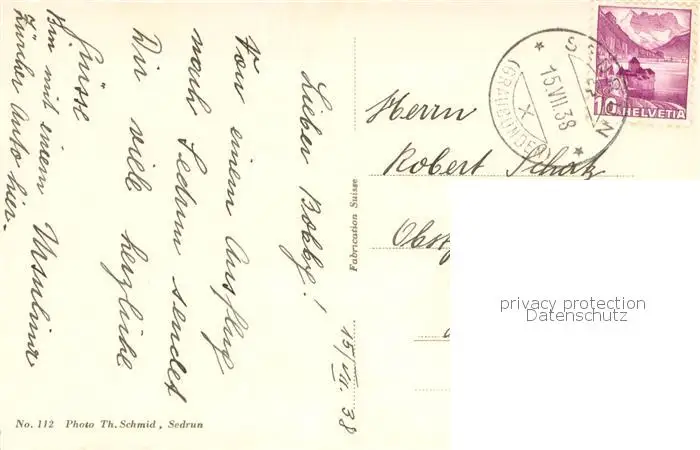 Lieber Bobby!
15/VII. 38
Von einem Ausflug
nach Sedrun sendet
Dir viele herzliche
Grüsse
Bin mit einem
Zürcher Auto hier.
No. 112 Photo Th. Schmid, Sedrun
Fabrication Suisse
Herrn
Robert Schätz
15.VII.38
(GRAUBÜNDEN)
10 HELVETIA
privacy protection
Datenschutz